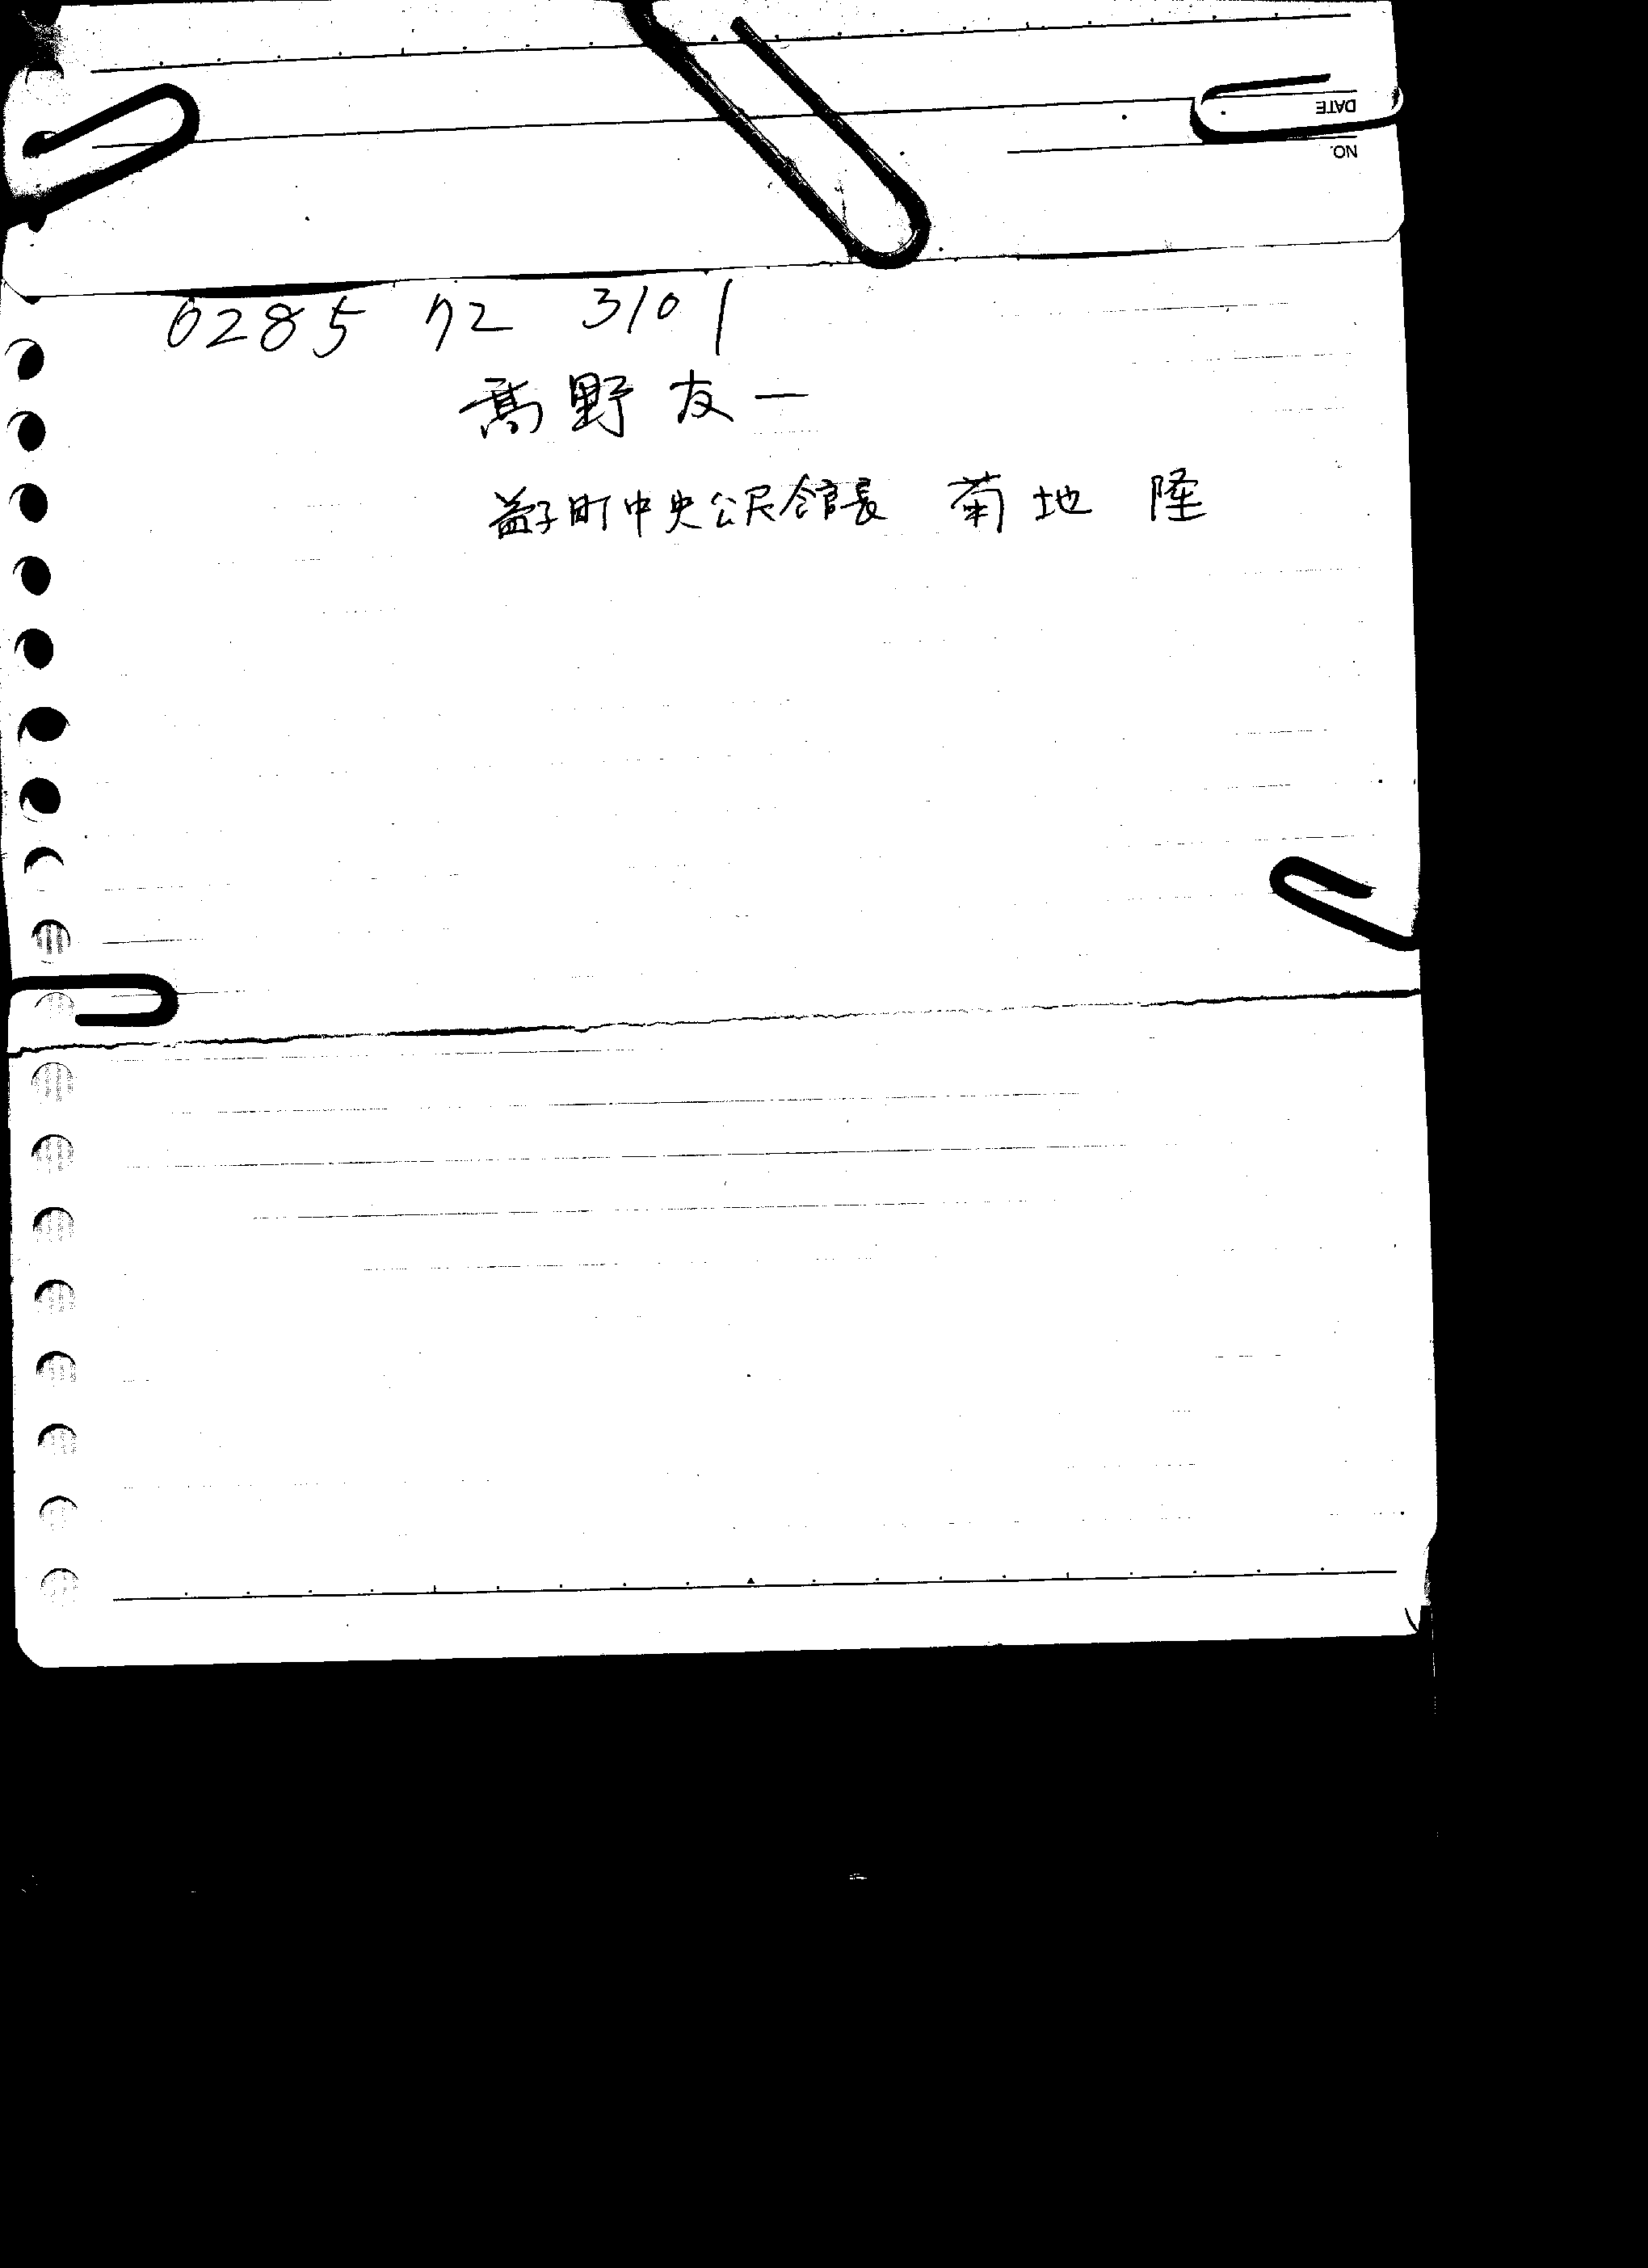 DATE
NO.
0285 72 3101
髙野友一
益子町中央公民館長 菊地 隆